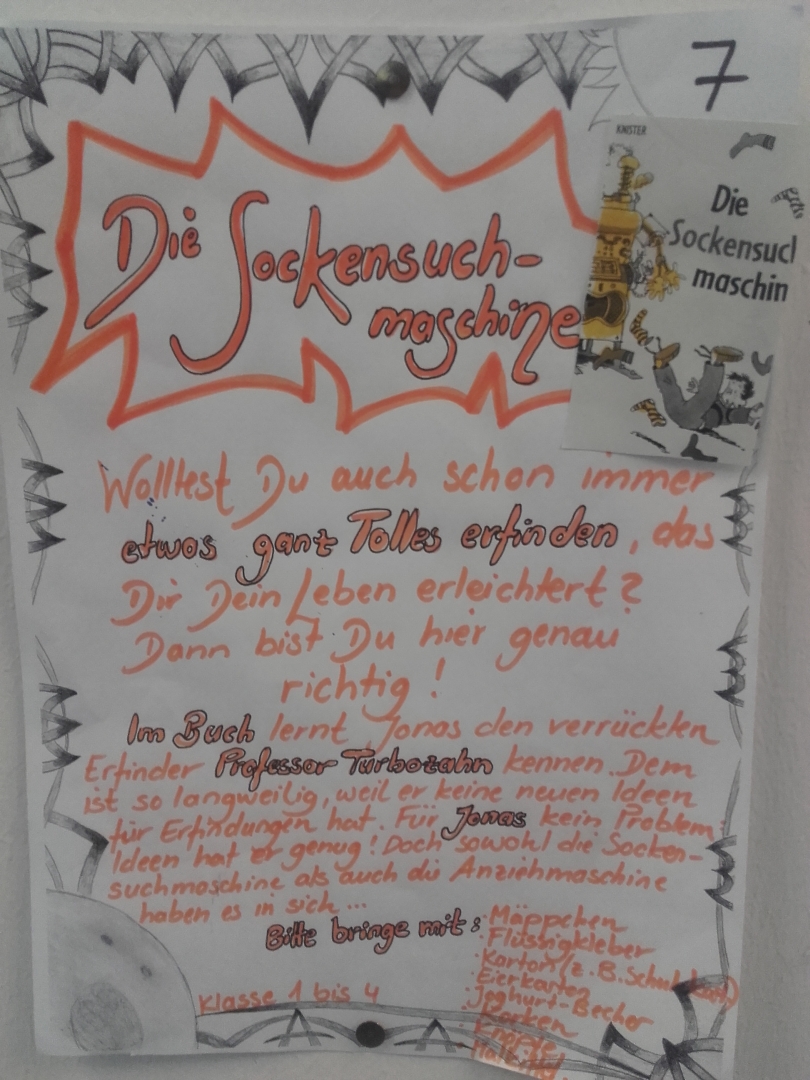 7
Die Sockensuch-
maschine
KNISTER
Die
Sockensucl
maschin
Wolltest Du auch schon immer
etwas ganz Tolles erfinden, das
Dir Dein Leben erleichtert?
Dann bist Du hier genau
richtig!
Im Buch lernt Jonas den verrückten
Erfinder Professor Turbozahn kennen. Dem
ist so langweilig, weil er keine neuen Ideen
für Erfindungen hat. Für Jonas kein Problem:
Ideen hat er genug! Doch sowohl die Socken-
suchmaschine als auch die Anziehmaschine
haben es in sich...
Bitte bringe mit:
· Mäppchen
· Flüssigkleber
· Karton (z.B. Schuhkart.)
· Eierkarton
· Joghurt-Becher
· Korken
· Knöpfe
Klasse 1 bis 4